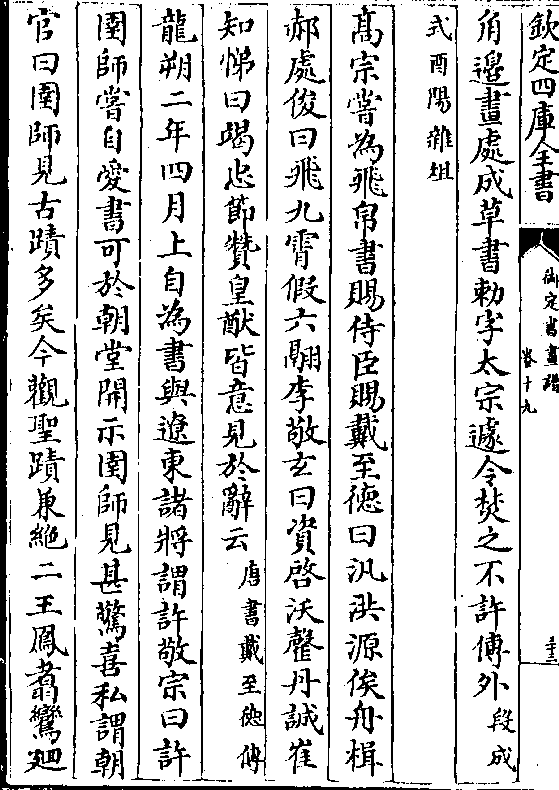 欽定四庫全書
御定書畫譜
卷十九
三
角邊畫處成草書勅字太宗遽令焚之不許傳外段成
式酉陽雜俎
髙宗嘗為飛帛書賜侍臣賜戴至德曰汎洪源俟舟楫
郝處俊曰飛九霄假六翮李敬玄曰資啓沃罄丹誠崔
知悌曰竭忠節贊皇猷皆意見於辭云唐書戴至德傳
龍朔二年四月上自為書與遼東諸將謂許敬宗曰許
圉師嘗自愛書可於朝堂開示圉師見甚驚喜私謂朝
官曰圉師見古蹟多矣今觀聖蹟兼絶二王鳳翥鸞廻